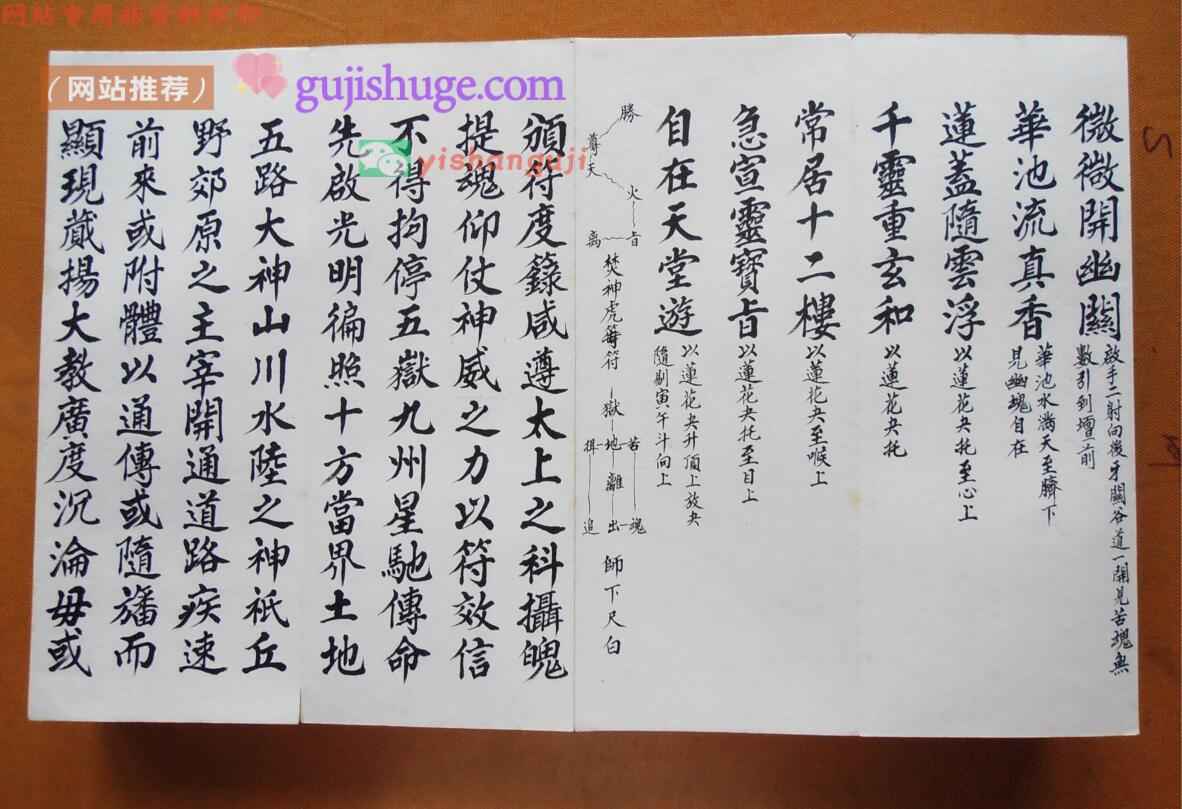 网站专用非资料水印
（网站推荐）
gujishuge.com
yishanguji
微微開幽關
啟手二射向後牙關谷道一開見苦魂無
數引到壇前
華池流真香
華池水滿天至臍下
見幽魂自在
蓮蓋隨雲浮
以蓮花夬托至心上
千靈重玄和
以蓮花夬托
常居十二樓
以蓮花夬至喉上
急宣靈寶旨
以蓮花夬托至目上
自在天堂遊
以蓮花夬升頂上放夬
隨剔寅午斗向上
勝
尊 天
火 旨
离
焚神虎等符
獄
揖 地 苦
離
追 出 魂
師下尺白
頒符度籙咸遵太上之科攝魄
提魂仰仗神威之力以符效信
不得拘停五嶽九州星馳傳命
先啟光明徧照十方當界土地
五路大神山川水陸之神祇丘
野郊原之主宰開通道路疾速
前來或附體以通傳或隨旛而
顯現蕆揚大教廣度沉淪毋或